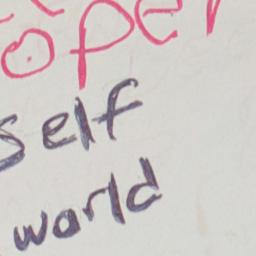 ope
self
world